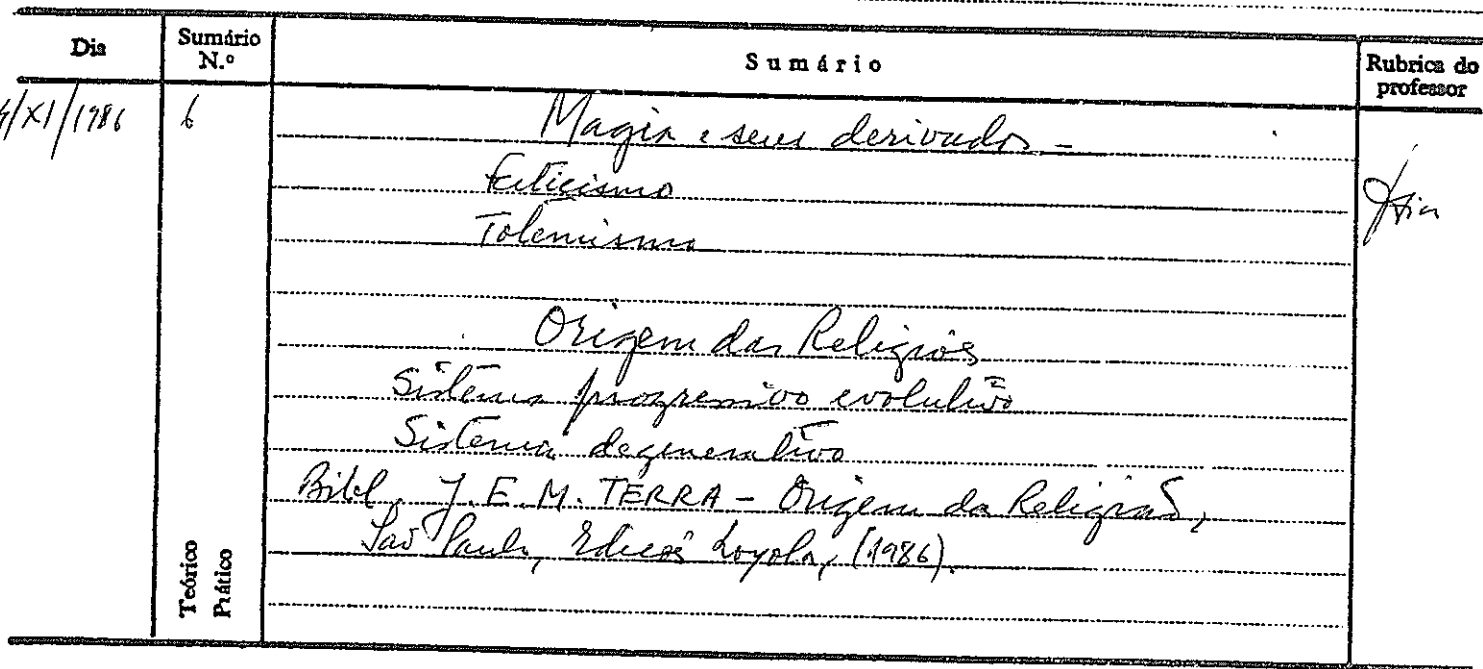 Dia
Sumário N.º
Sumário
Rubrica do professor
4/XI/1986
6
Magia e seus derivados -
Feticismo
Totemismo
Origem das Religiões
Sistema progressivo evolutivo
Sistema degenerativo
Bibl. J. E. M. TERRA - Origem da Religião,
São Paulo, Edições Loyola, (1986).
Teórico
Prático